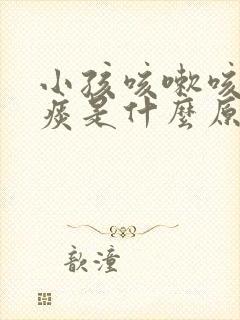 小孩咳嗽咳
痰是什麼原
歆潼